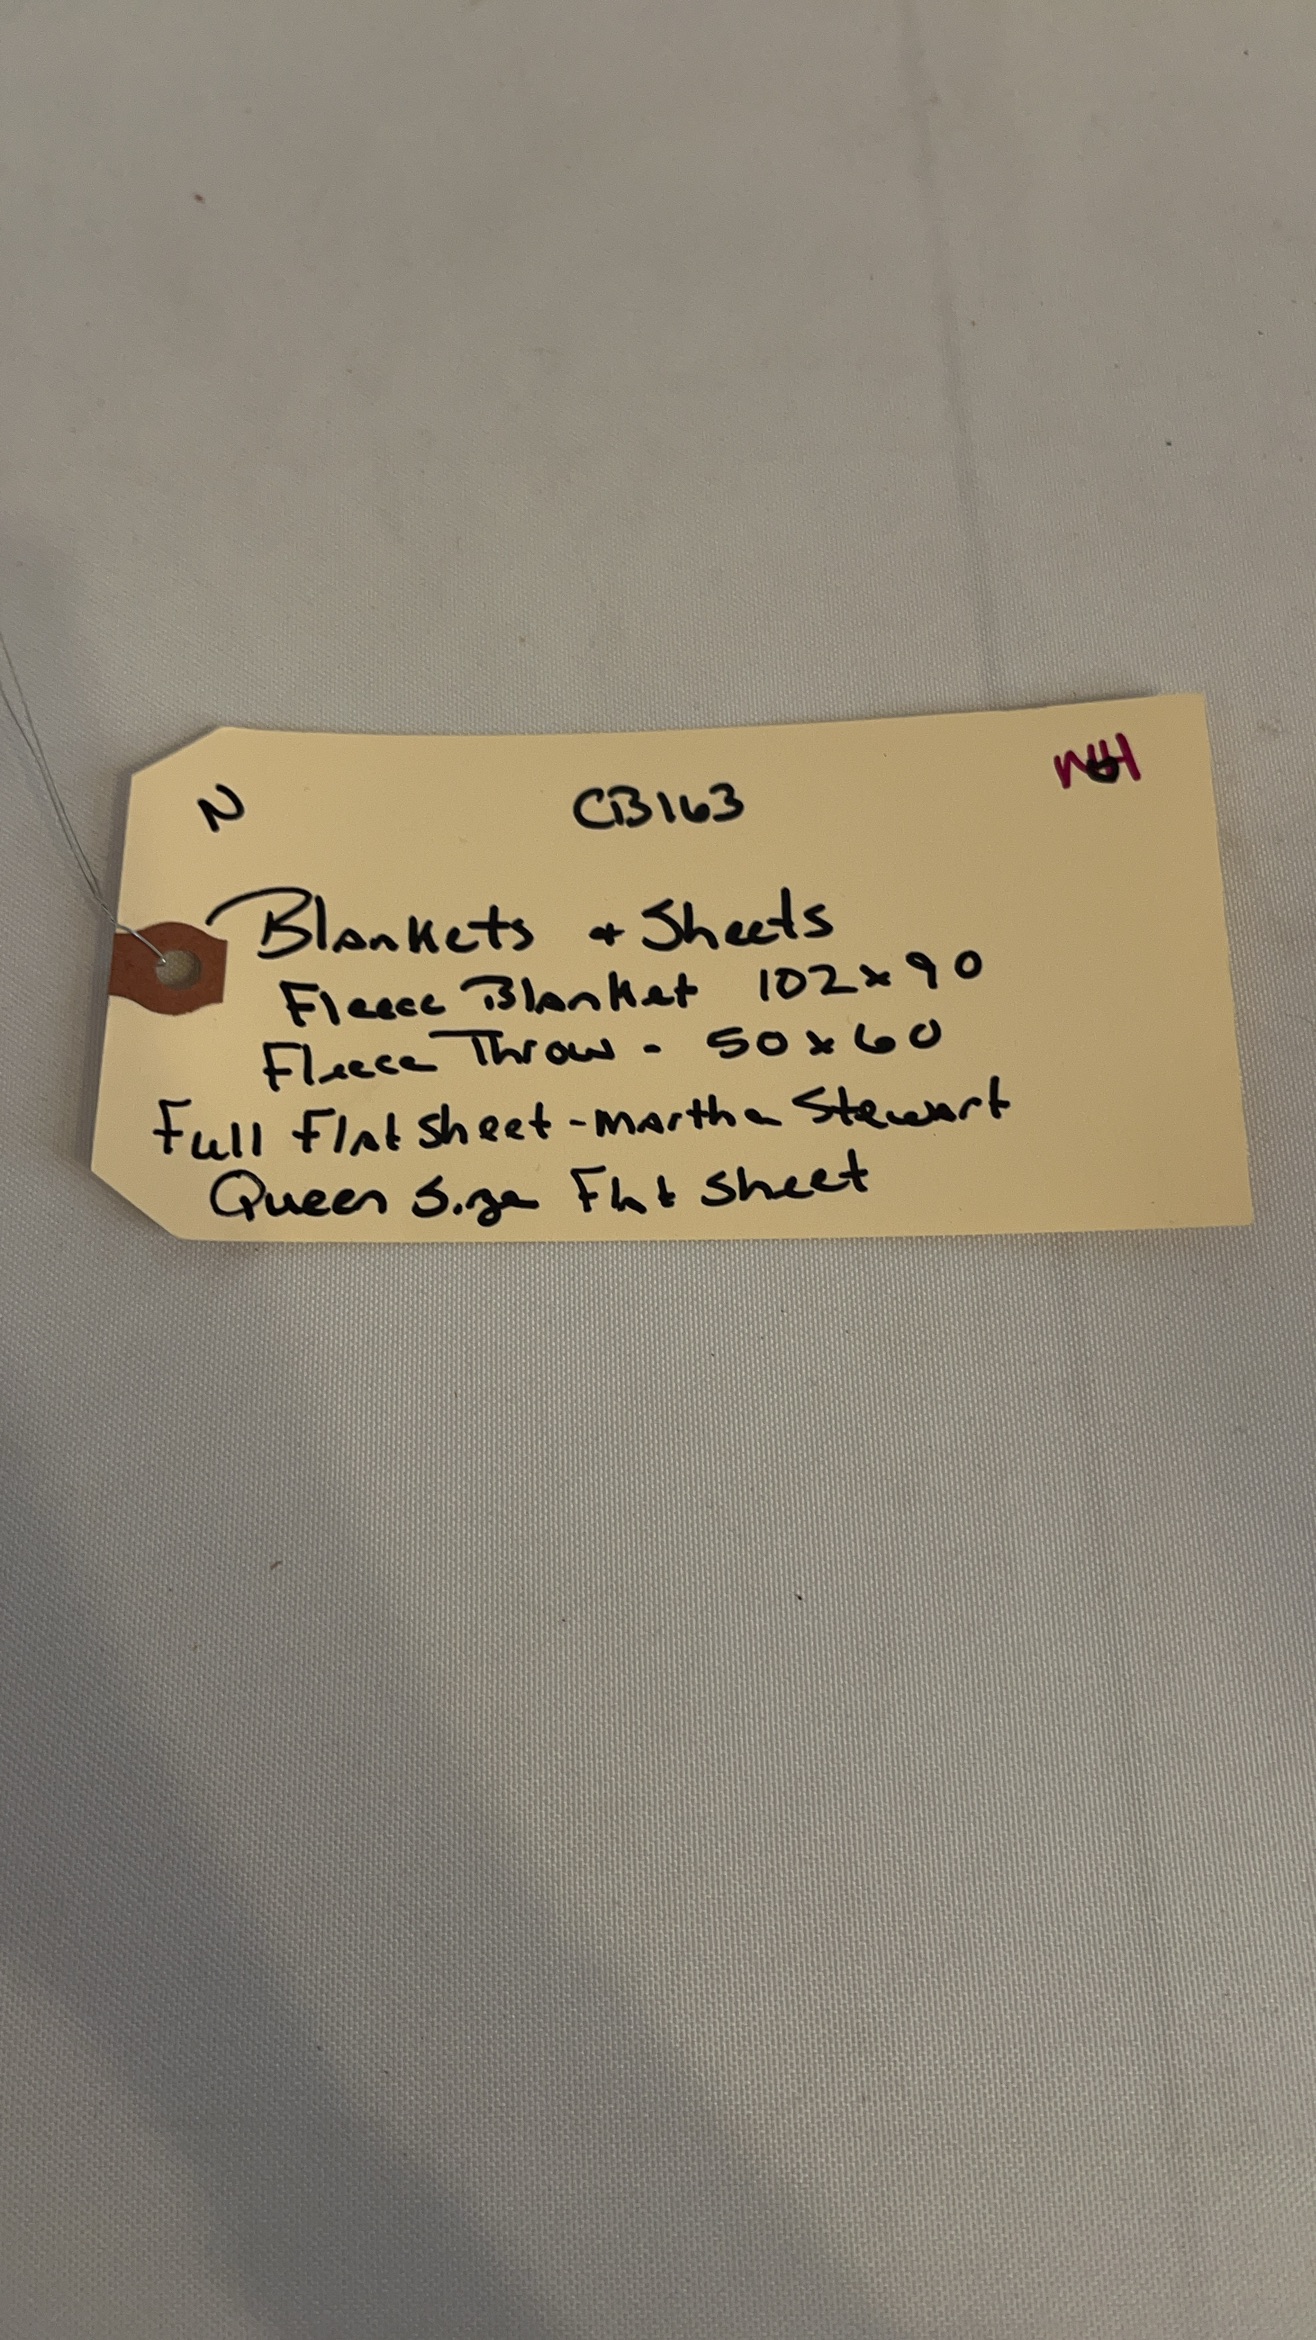 N CB163
Blankets + Sheets
Fleece Blanket 102x90
Fleece Throw - 50x60
Full Flat sheet - Martha Stewart
Queen Size Flat sheet